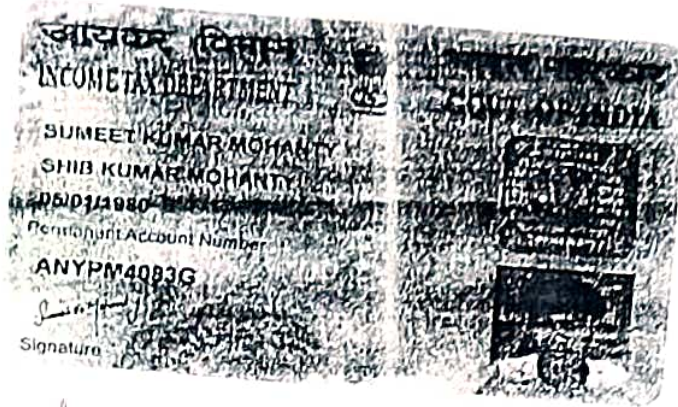 आयकर विभाग
INCOME TAX DEPARTMENT
GOVT. OF INDIA
SUMEET KUMAR MOHANTY
SHIB KUMAR MOHANTY
05/01/1980
Permanent Account Number
ANYPM4083G
Signature